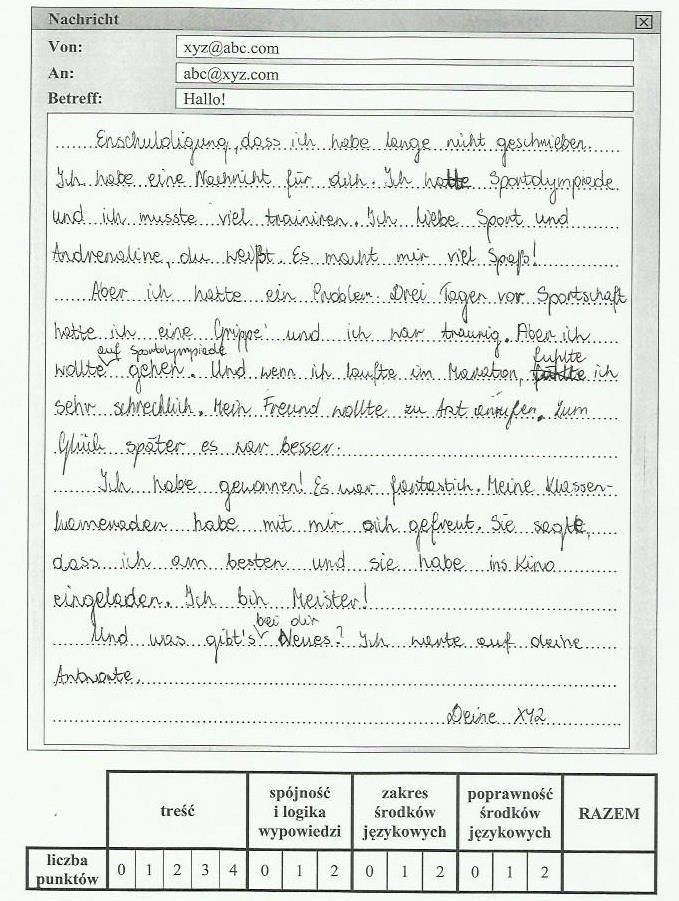 Nachricht
Von: xyz@abc.com
An: abc@xyz.com
Betreff: Hallo!
Enschuldigung, dass ich habe lange nicht geschrieben.
Ich habe eine Nachricht für dich. Ich hatte Sportolympiede
und ich musste viel trainiren. Ich liebe Sport und
Andrenaline, du weißt. Es macht mir viel Spaß!
Aber ich hatte ein Problem. Drei Tagen vor Sportschaft
hatte ich eine Grippe und ich war traunig. Aber ich
auf Sportolympiede
wollte gehen. Und wenn ich laufte im Maraton, fuhlte ich
sehr schrecklich. Mein Freund wollte zu Arzt anrufen. Zum
Glück später es war besser.
Ich habe gewonnen! Es war fantastich. Meine Klassen-
kameraden habe mit mir sich gefreut. Sie sagte,
dass ich am besten und sie habe ins Kino
eingeladen. Ich bin Meister!
bei dir
Und was gibt's Neues? Ich warte auf deine
Antworte.
Deine XYZ
treść
spójność i logika wypowiedzi
zakres środków językowych
poprawność środków językowych
RAZEM
liczba punktów 0 1 2 3 4 0 1 2 0 1 2 0 1 2